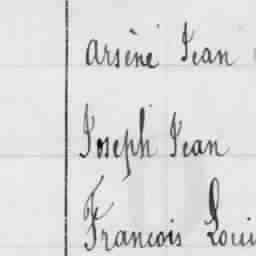 Arsène Jean
Joseph Jean
François Loui